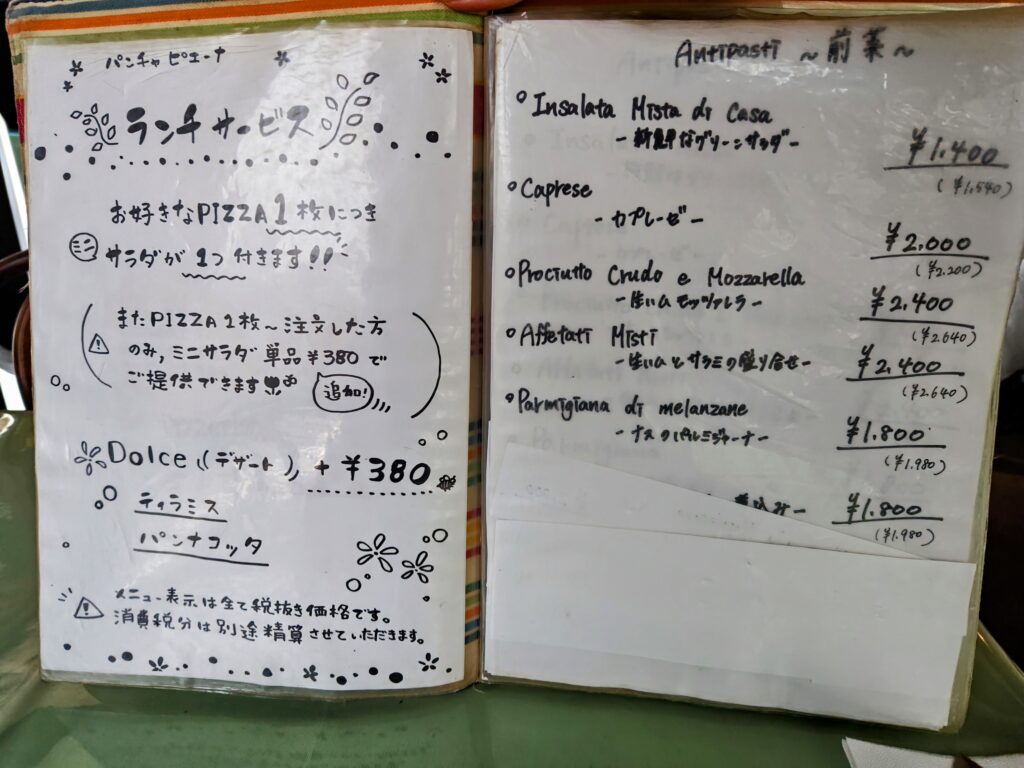 パンチャ ピエーナ
ランチサービス
お好きなPIZZA 1枚につき
ミニ サラダが 1つ 付きます!!
また PIZZA 1枚〜注文した方
のみ, ミニサラダ 単品 ¥380 で
ご提供できます
追加!
Dolce (デザート) + ¥380
ティラミス
パンナコッタ
メニュー表示は全て税抜き価格です。
消費税分は別途精算させていただきます。
Antipasti 〜前菜〜
Insalata Mista di Casa
-新鮮なグリーンサラダ-
¥1.400
(¥1.540)
Caprese
-カプレーゼ-
¥2.000
(¥2.200)
Prociutto Crudo e Mozzarella
-生ハム モッツァレラ-
¥2.400
(¥2.640)
Affetati Misti
-生ハムとサラミの盛り合せ-
¥2.400
(¥2.640)
Parmigiana di melanzane
-ナスのパルミジャーナ-
¥1.800
(¥1.980)
込み-
¥1.800
(¥1.980)